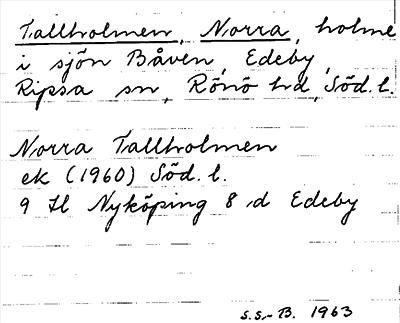 Tallholmen, Norra, holme
i sjön Båven, Edeby,
Ripsa sn, Rönö hd, Söd. l.
Norra Tallholmen
ek (1960) Söd. l.
9 H Nyköping 8 d Edeby
S.S.-B. 1963